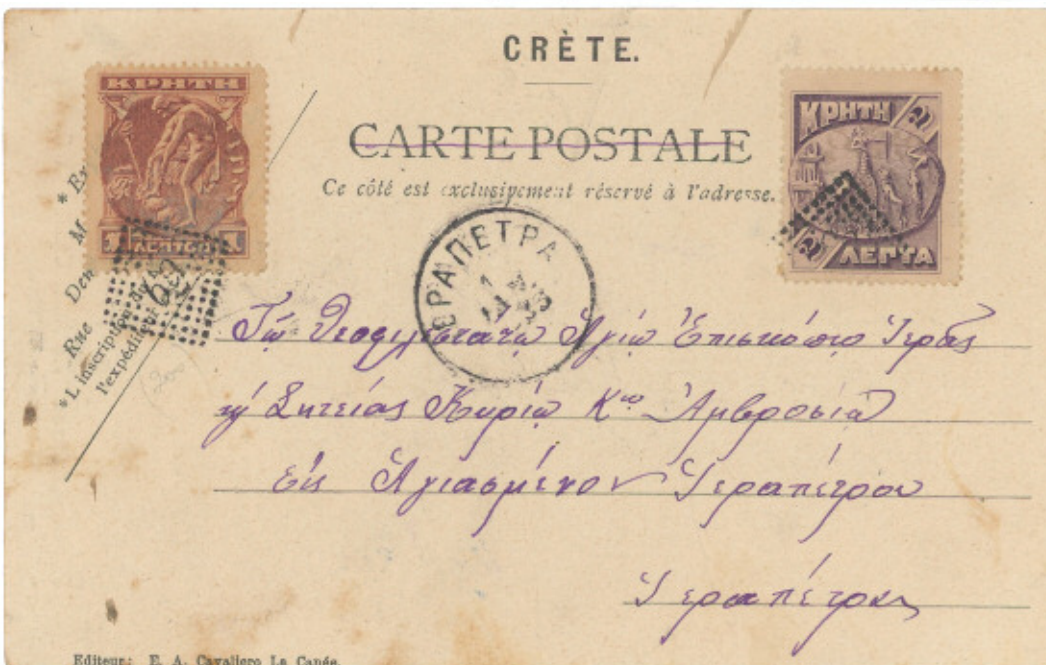 CRÈTE.
CARTE POSTALE
Ce côté est exclusivement réservé à l'adresse.
ΚΡΗΤΗ
1 ΛΕΠΤΟΝ 1
ΚΡΗΤΗ 2
2 ΛΕΠΤΑ
* Ex
M
Den
Rue
* L'inscription
l'expéditeur
62
ΕΡΑΠΕΤΡΑ
Τῷ Θεοφιλεστάτῳ Ἁγίῳ Ἐπισκόπῳ Ἱερᾶς
ϗ Σητείας Κυρίῳ Κῳ Ἀμβροσίῳ
Εἰς Ἁγιασμένον Ἱεραπέτρου
Ἱεραπέτραν
Editeur: E. A. Cavaliero La Canée.